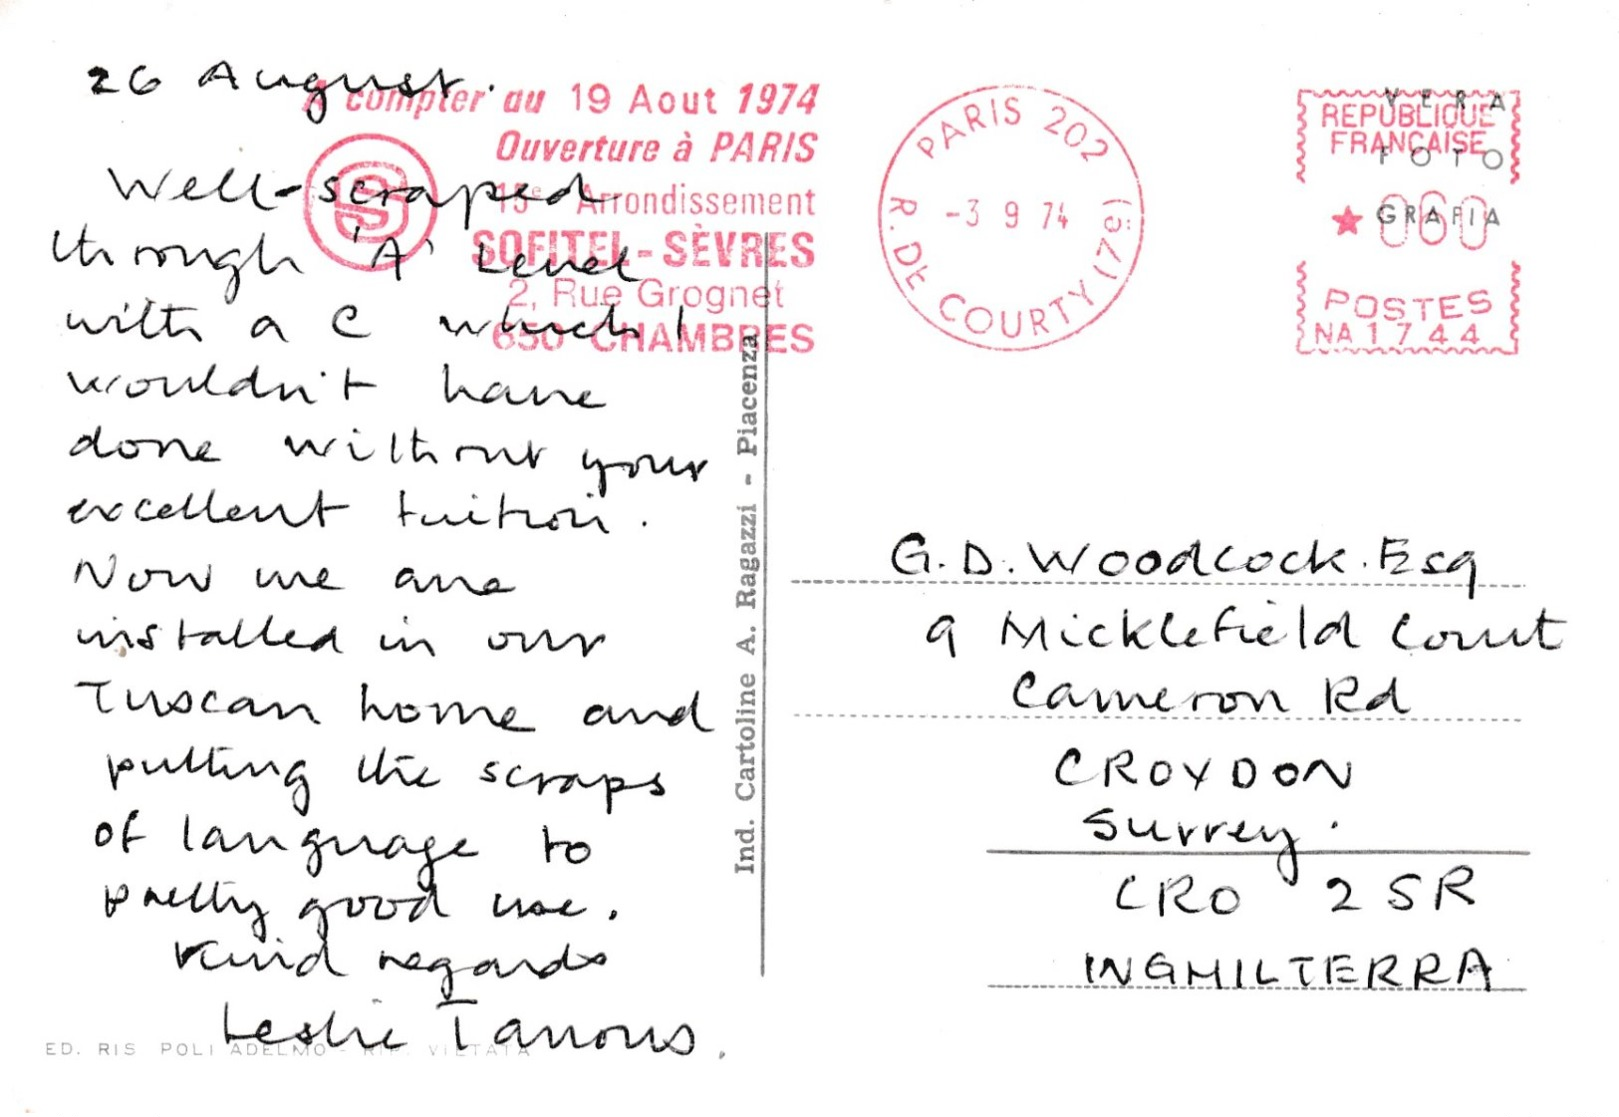 26 August.
Well-scraped
through 'A' Level
with a C which I
wouldn't have
done without your
excellent tuition.
Now we are
installed in our
Tuscan home and
putting the scraps
of language to
pretty good use.
Kind regards
Leslie Tanous.
ED. RIS POLI ADELMO - RIP. VIETATA
A compter du 19 Aout 1974
Ouverture à PARIS
15e Arrondissement
SOFITEL-SÈVRES
2, Rue Grognet
650 CHAMBRES
S
Ind. Cartoline A. Ragazzi - Piacenza
PARIS 202
-3 9 74
R. DE COURTY (79)
REPUBLIQUE
FRANÇAISE
060
POSTES
NA 1744
VERA
FOTO
GRAFIA
G.D. Woodcock. Esq
9 Micklefield Court
Cameron Rd
CROYDON
Surrey.
CRO 2SR
INGHILTERRA